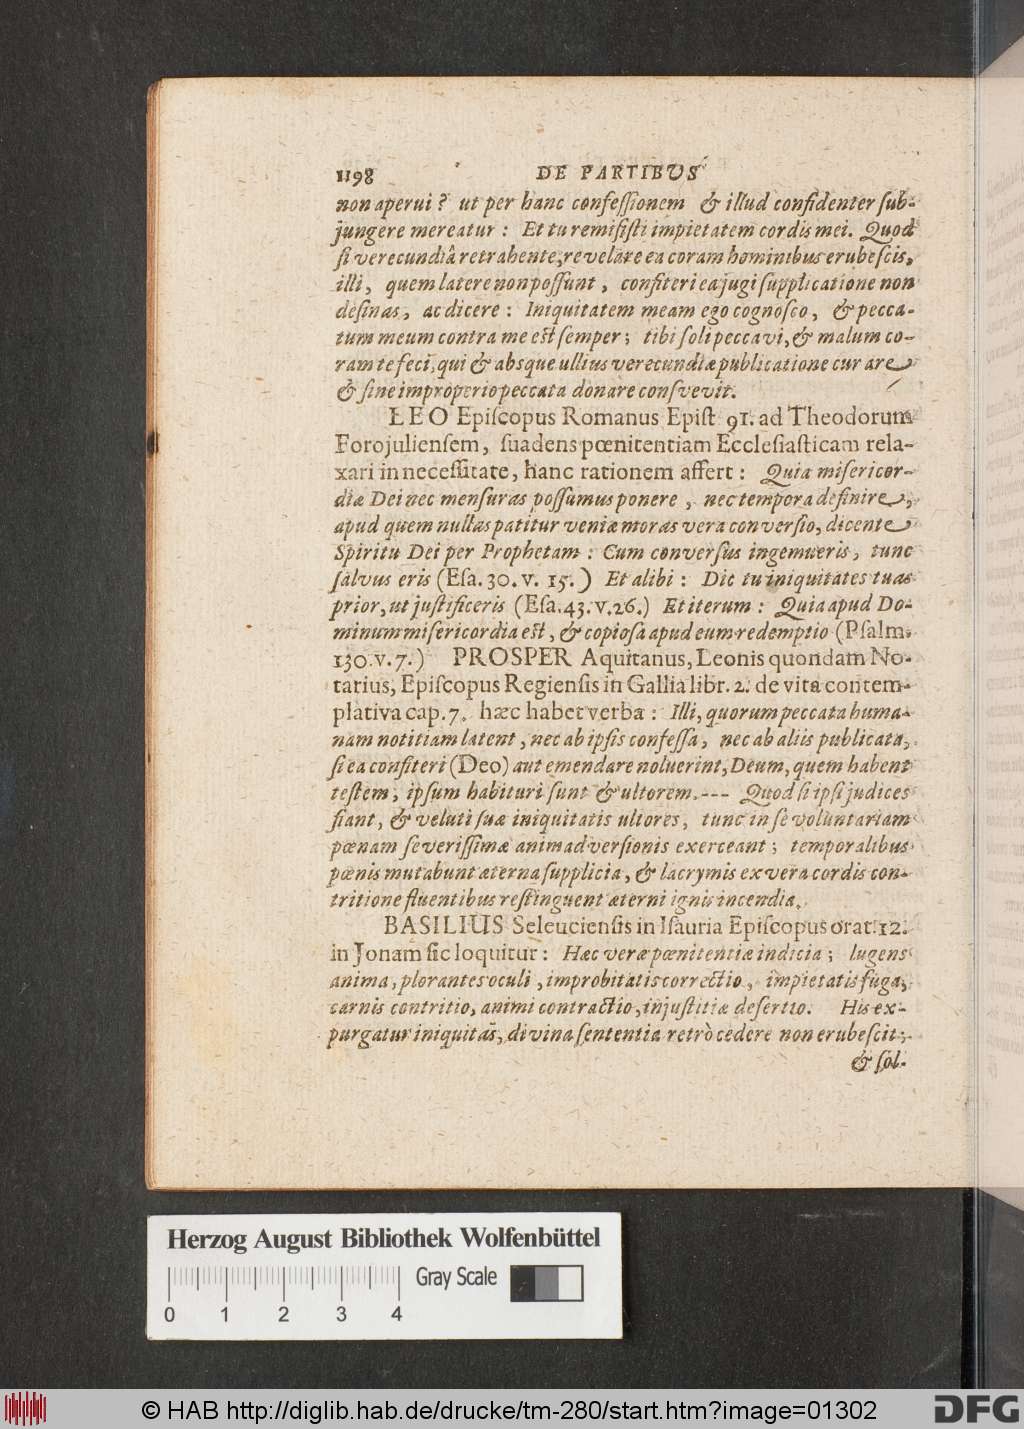 1198 DE PARTIBUS
non aperui? ut per hanc confeſſionem & illud confidenter ſub-
jungere mereatur: Et tu remiſiſti impietatem cordis mei. Quod
ſi verecundiâ retrahente, revelare ea coram hominibus erubeſcis,
illi, quem latere non poſſunt, confiteri ea jugi ſupplicatione non
deſinas, ac dicere: Iniquitatem meam ego cognoſco, & pecca-
tum meum contra me eſt ſemper; tibi ſoli peccavi, & malum co-
ram te feci, qui & absque ullius verecundiæ publicatione curare
& ſine improperio peccata donare conſvevit.
LEO Epiſcopus Romanus Epiſt 91. ad Theodorum
Forojulienſem, ſuadens pœnitentiam Eccleſiaſticam rela-
xari in neceſſitate, hanc rationem affert: Quia miſericor-
diæ Dei nec menſuras poſſumus ponere, nec tempora definire,
apud quem nullas patitur veniæ moras vera converſio, dicente
Spiritu Dei per Prophetam: Cum converſus ingemueris, tunc
ſalvus eris (Eſa. 30. v. 15.) Et alibi: Dic tu iniquitates tuas
prior, ut juſtificeris (Eſa. 43. v. 26.) Et iterum: Quia apud Do-
minum miſericordia eſt, & copioſa apud eum redemptio (Pſalm.
130. v. 7.) PROSPER Aquitanus, Leonis quondam No-
tarius, Epiſcopus Regienſis in Gallia libr. 2. de vita contem-
plativa cap. 7. hæc habet verba: Illi, quorum peccata huma-
nam notitiam latent, nec ab ipſis confeſſa, nec ab aliis publicata,
ſi ea confiteri (Deo) aut emendare noluerint, Deum, quem habent
teſtem, ipſum habituri ſunt & ultorem.--- Quod ſi ipſi judices
fiant, & veluti ſuæ iniquitatis ultores, tunc in ſe voluntariam
pœnam ſeveriſſimæ animadverſionis exerceant; temporalibus
pœnis mutabunt æterna ſupplicia, & lacrymis ex vera cordis con-
tritione fluentibus reſtinguent æterni ignis incendia.
BASILIUS Seleucienſis in Iſauria Epiſcopus orat. 12.
in Jonam ſic loquitur: Hæc veræ pœnitentiæ indicia; lugens
anima, plorantes oculi, improbitatis correctio, impietatis fuga,
carnis contritio, animi contractio, injuſtitiæ deſertio. His ex-
purgatur iniquitas, divina ſententia retrò cedere non erubeſcit;
& ſol-
Herzog August Bibliothek Wolfenbüttel
Gray Scale
0 1 2 3 4
© HAB http://diglib.hab.de/drucke/tm-280/start.htm?image=01302
DFG